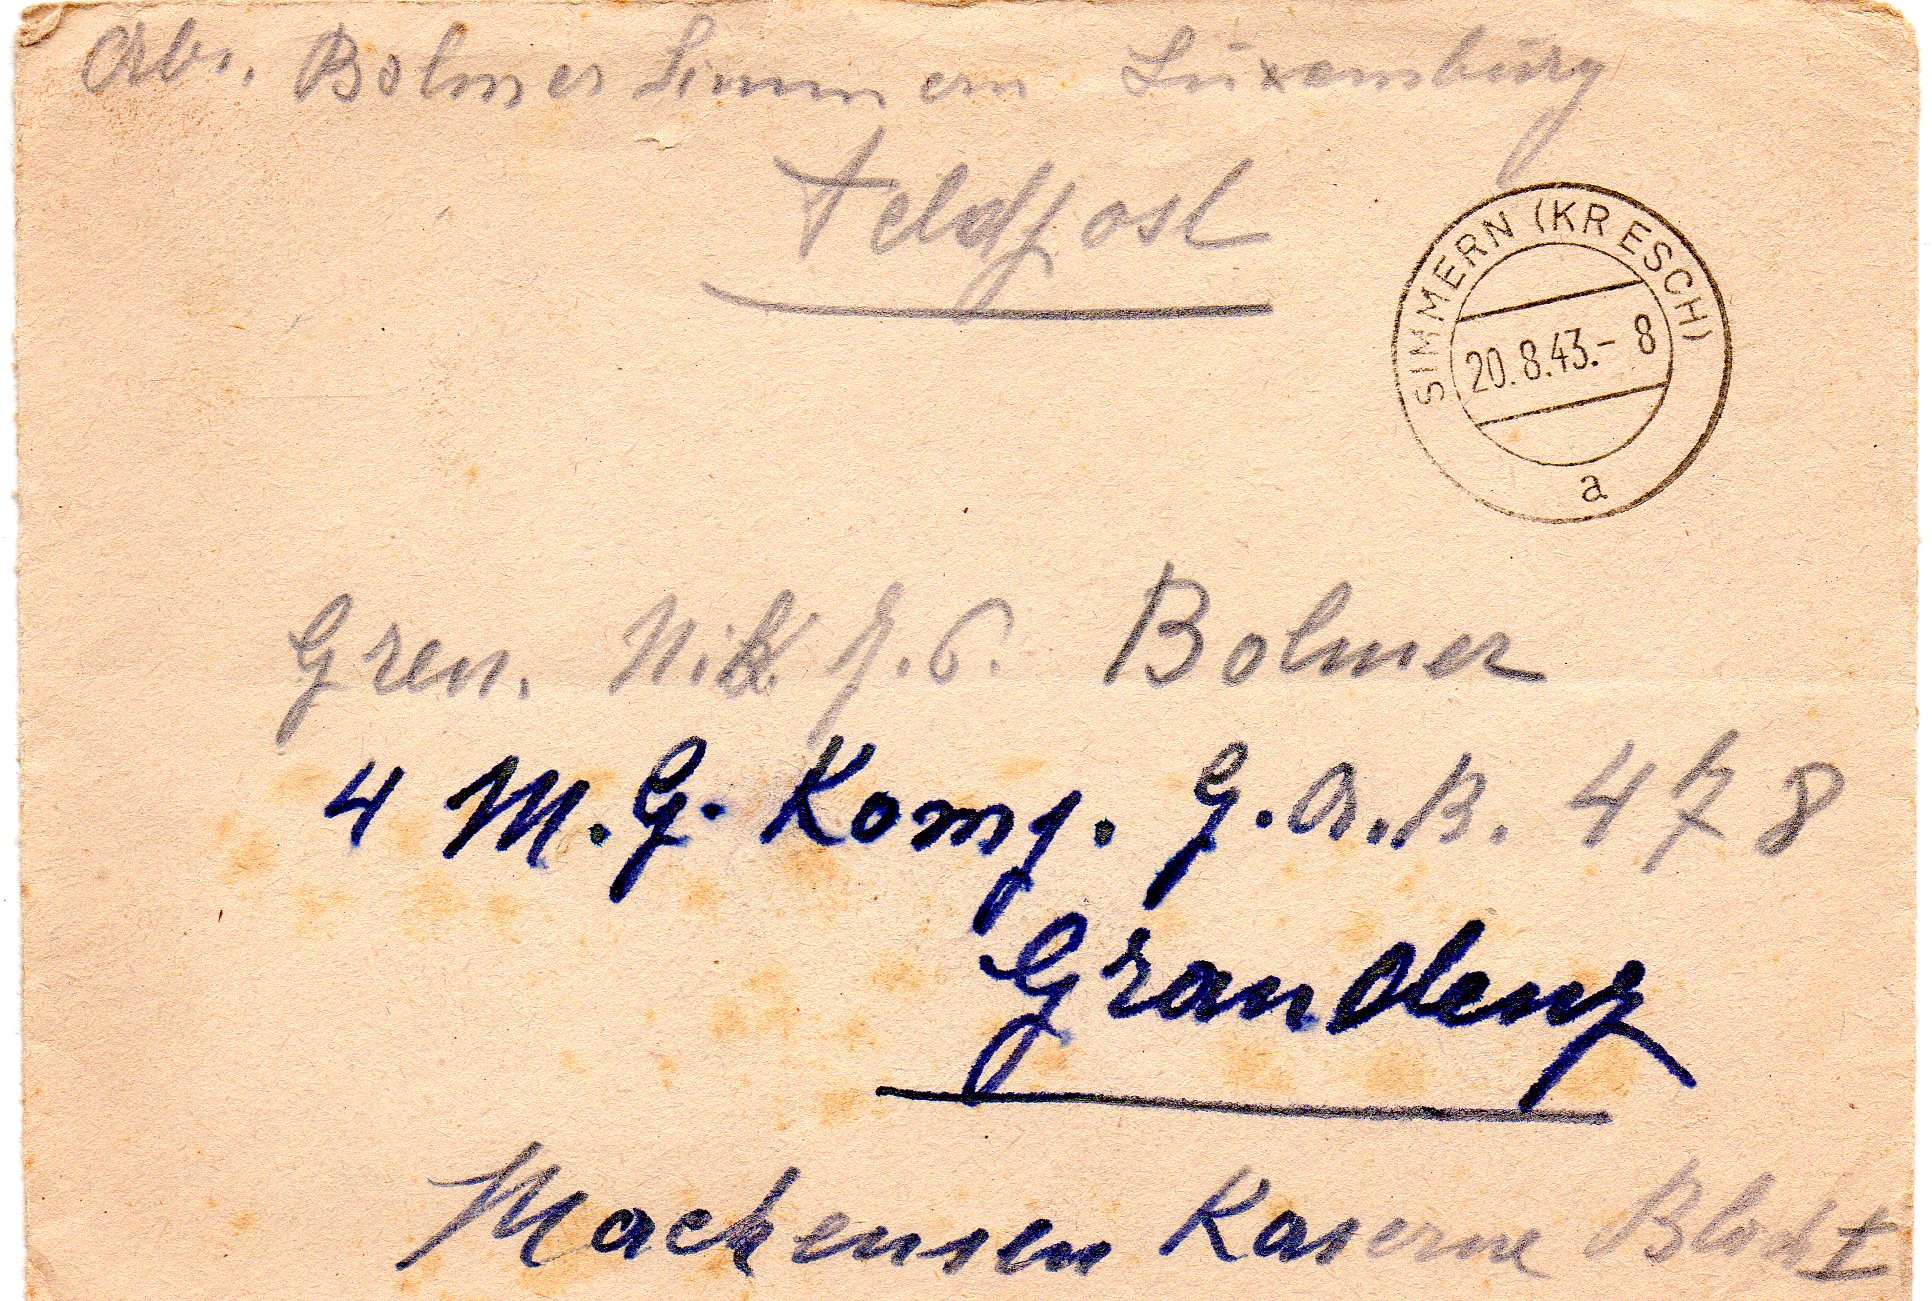 Abs. Bolmer Simmern Luxemburg
Feldpost
SIMMERN (KR ESCH)
20.8.43.-8
a
Gren. Nik. Bolmer
4 M.G. Komp. G.A.B. 478
Graudenz
Mackensen Kaserne Block I